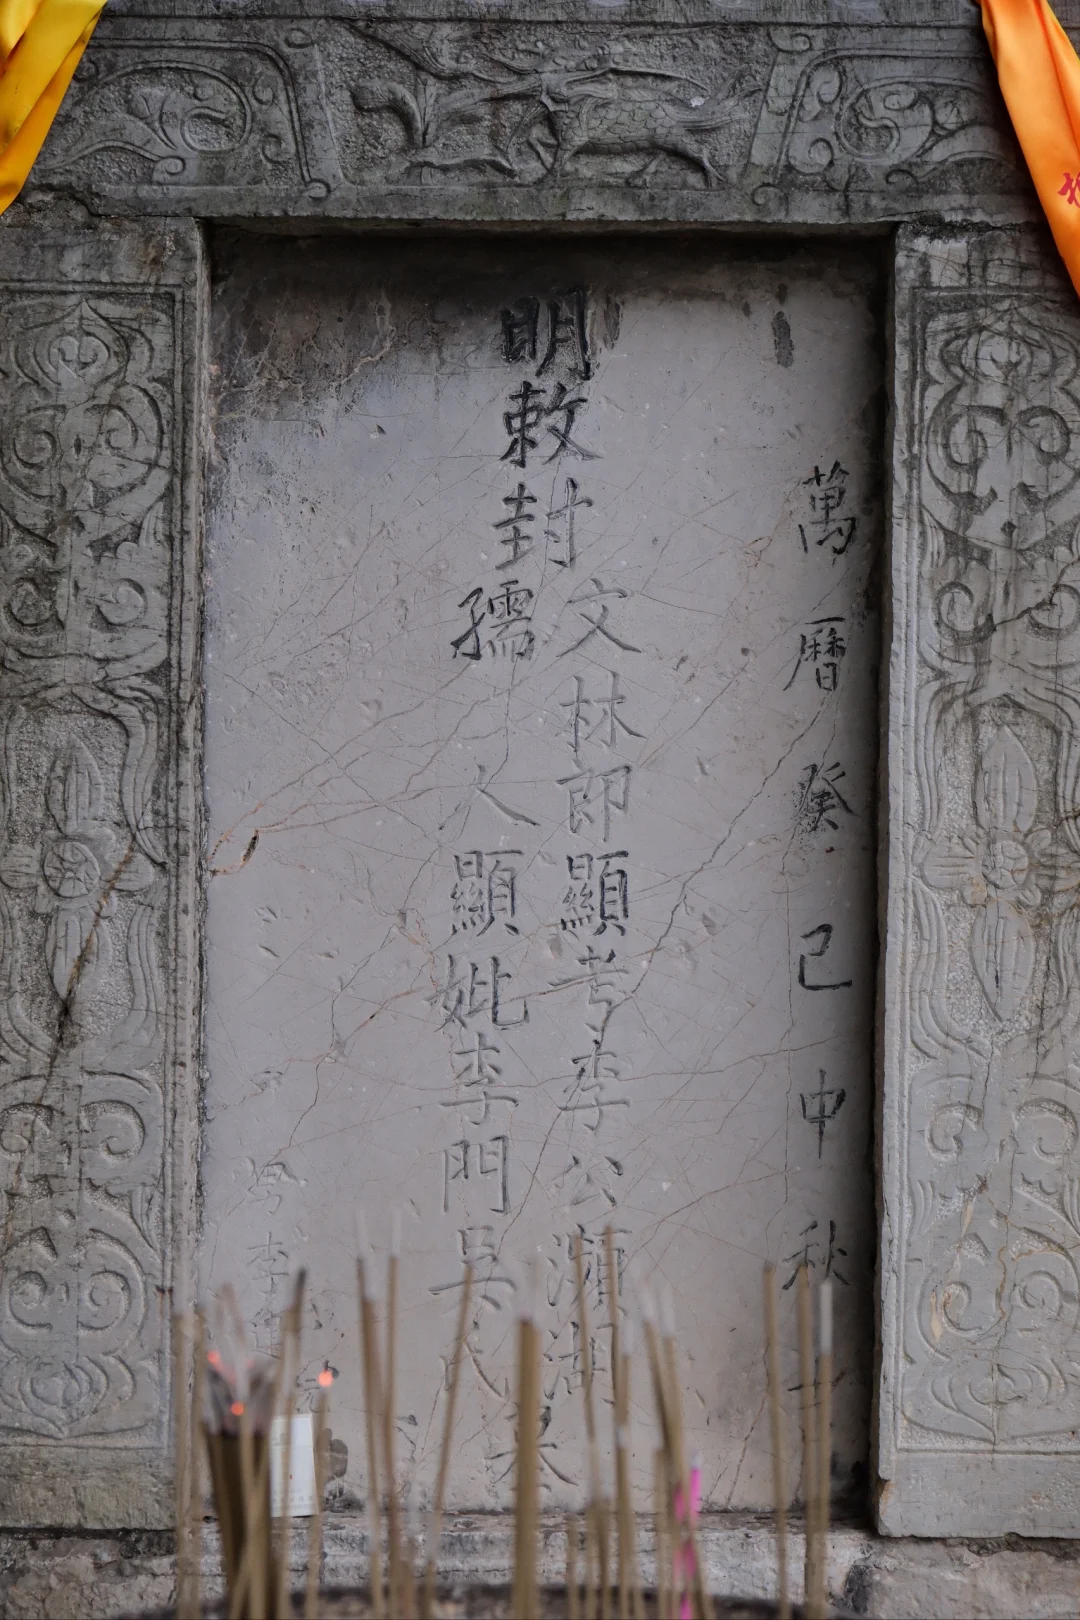 萬曆癸巳中秋
明敕封
文林郎顯考李公瀕湖
孺人顯妣李門吳氏
墓
男李建元